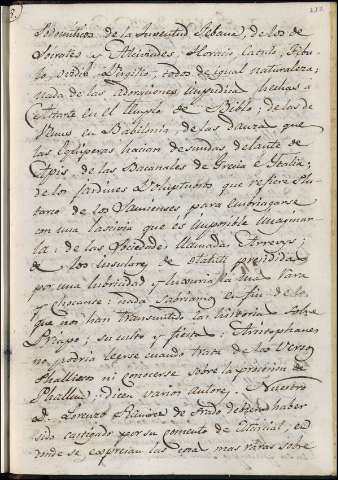 de la Juventud Tebana, de los de
Socrates y Alcibiades, Horacio, Catulo, Tibu-
lo, Ovidio, Virgilio, todos de igual naturaleza;
nada de las adoraciones impudicas hechas a
Astarte en el Templo de Biblo; de las de
Venus en Babilonia, de las danzas que
las Egipcias hacian desnudas delante de
Apis, de las Bacanales de Grecia e Italia;
de los Jardines Voluptuosos que refiere Plu-
tarco de los Samienses para embriagarse
con una lascivia que es imposible imaginar-
la; de las Sociedades llamada
de los Insulares de
por una lubricidad y luxuria la mas rara
y chocante: nada sabriamos en fin de lo
que nos han transmitido las historias sobre
Priapo; su culto y fiestas. Aristophanes
no podria leerse cuando trata de los Versos
Phallicos ni conocerse sobre la procesion de
Phallus, dicen varios autores. Nuestro
D. Lorenzo Ramirez de Prado debera haber
sido castigado por su comento de Marcial, en
donde se expresan las cosas mas raras sobre